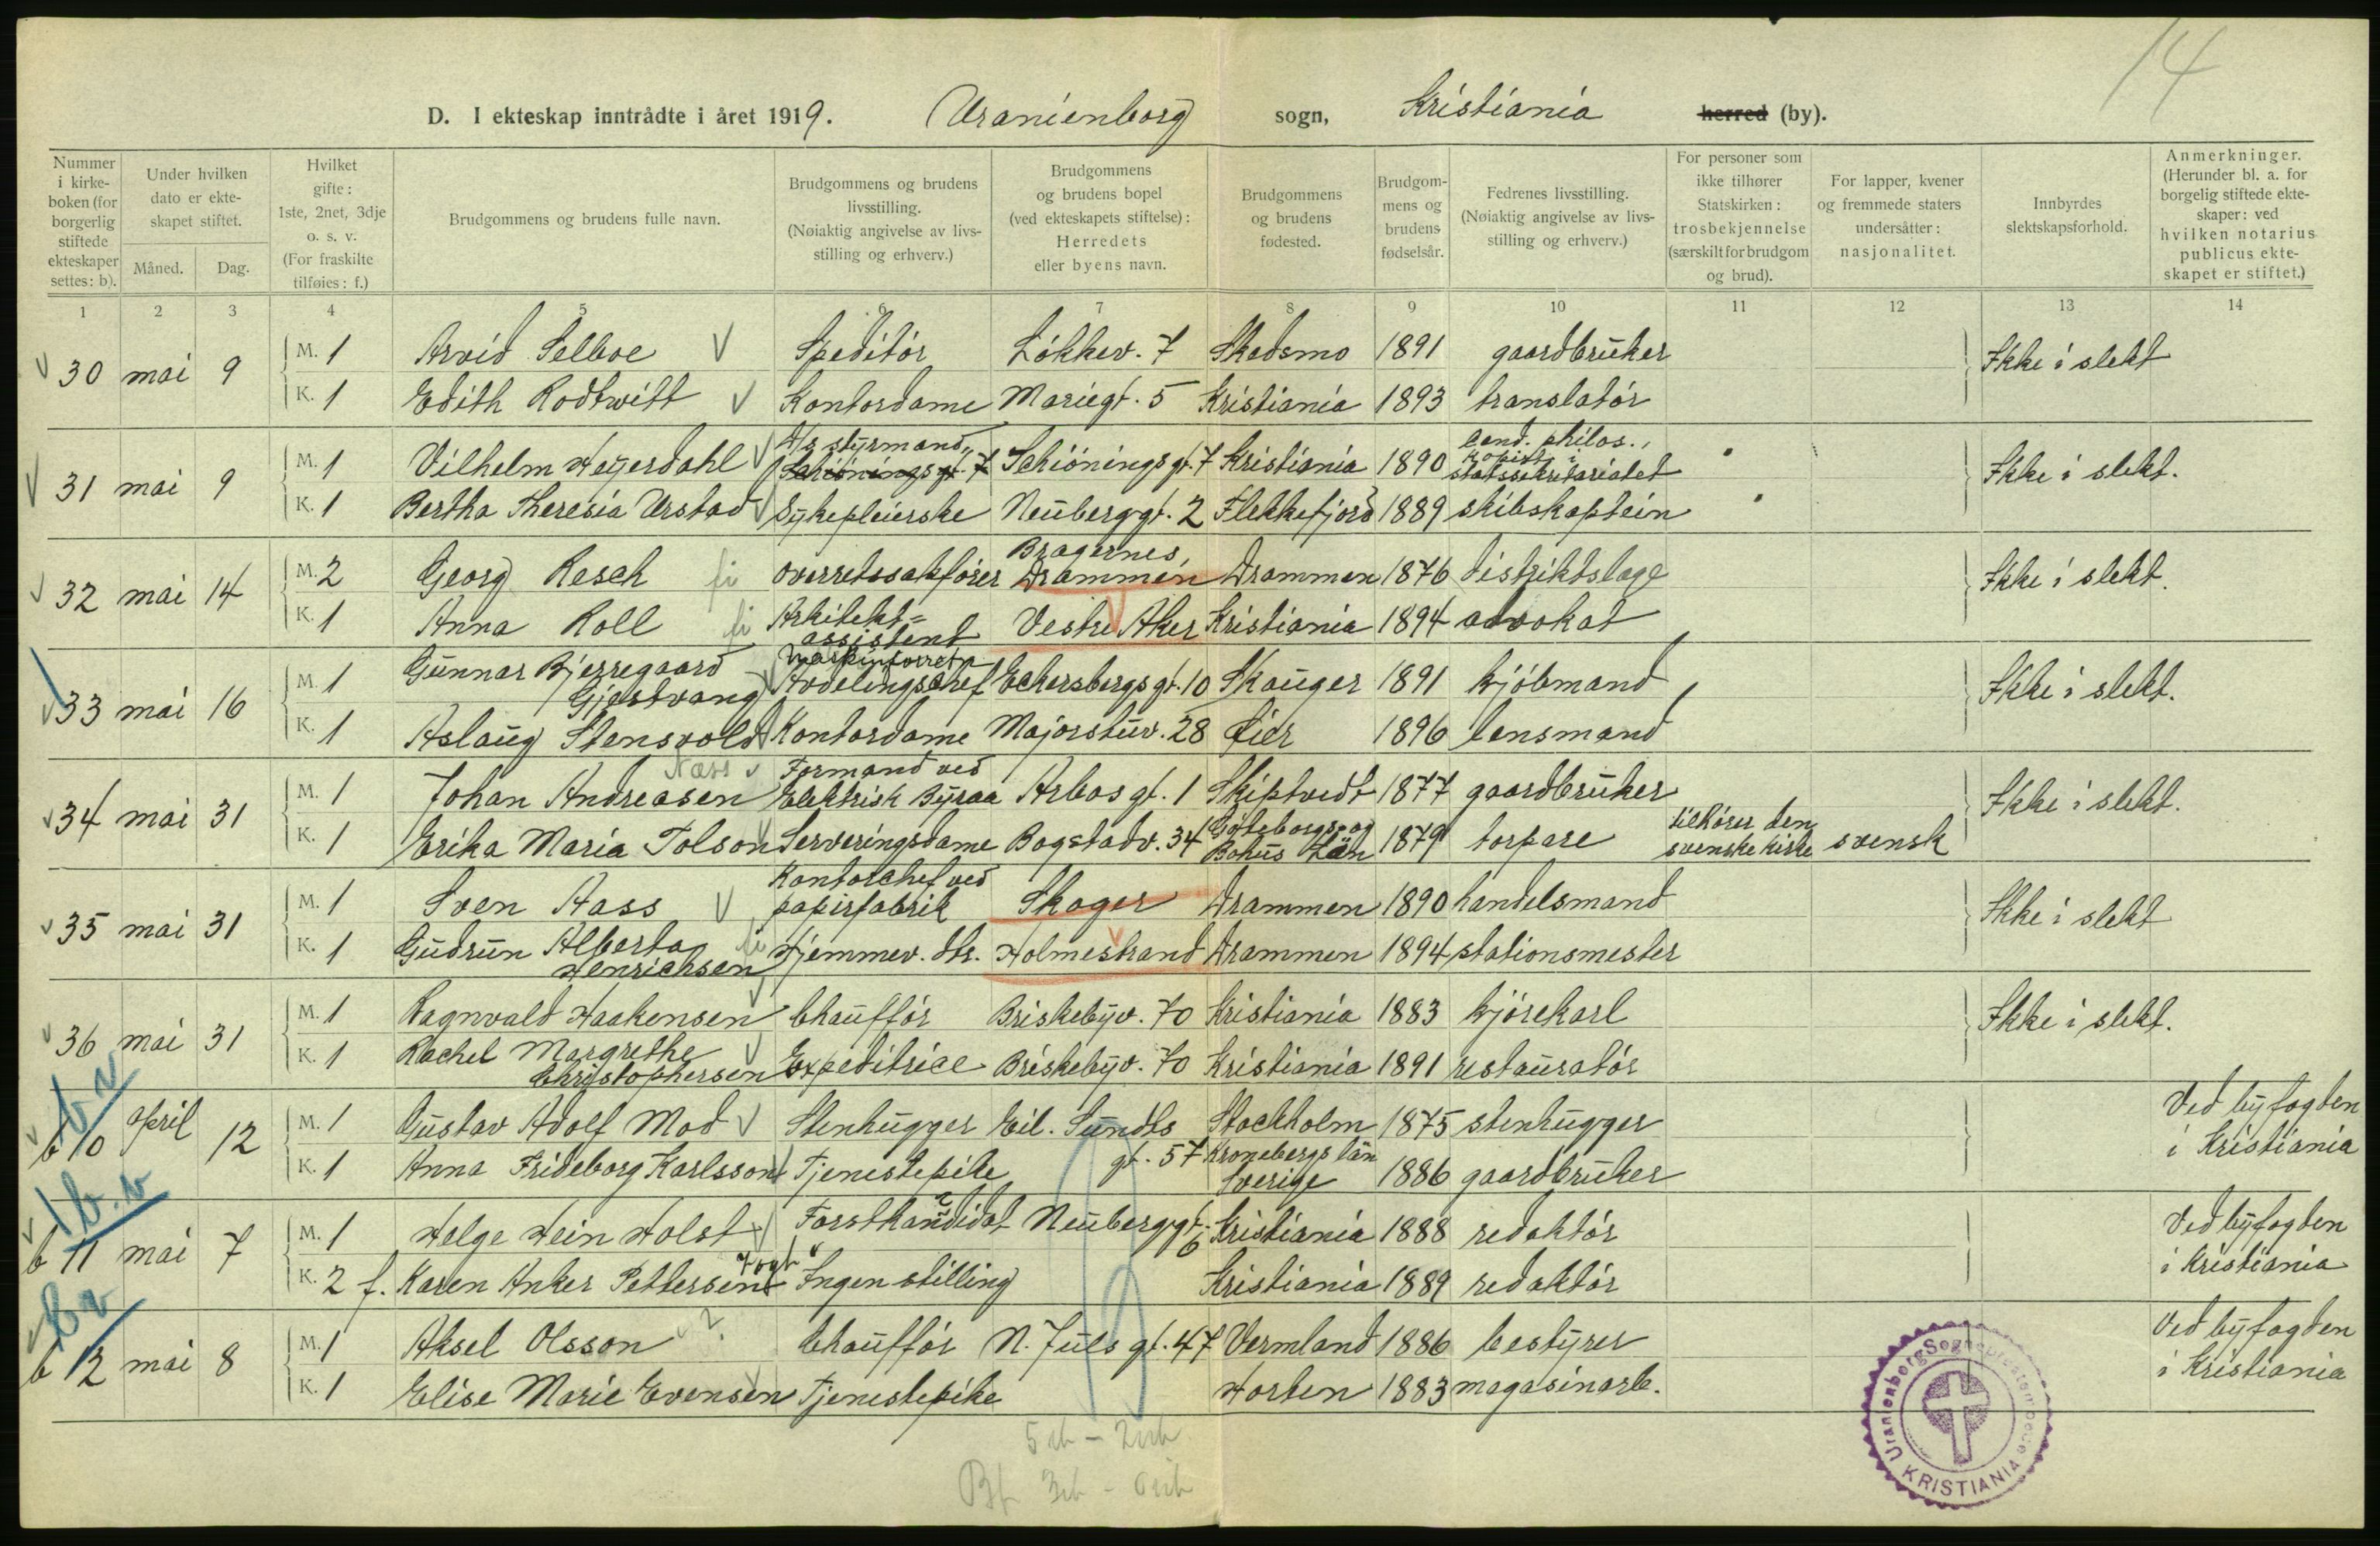 14
D. I ekteskap inntrådte i året 1919. Uranienborg sogn, Kristiania herred (by).
Nummer i kirke-boken (for borgerlig stiftede ekteskaper settes: b).
Under hvilken dato er ekte-skapet stiftet.
Måned. Dag.
Hvilket gifte: 1ste, 2net, 3dje o. s. v. (For fraskilte tilføies: f.)
Brudgommens og brudens fulle navn.
Brudgommens og brudens livsstilling. (Nøiaktig angivelse av livs-stilling og erhverv.)
Brudgommens og brudens bopel (ved ekteskapets stiftelse): Herredets eller byens navn.
Brudgommens og brudens fødested.
Brudgom-mens og brudens fødselsår.
Fedrenes livsstilling. (Nøiaktig angivelse av livs-stilling og erhverv.)
For personer som ikke tilhører Statskirken: trosbekjennelse (særskilt for brudgom og brud).
For lapper, kvener og fremmede staters undersåtter: nasjonalitet.
Innbyrdes slektskapsforhold.
Anmerkninger. (Herunder bl. a. for borgelig stiftede ekte-skaper: ved hvilken notarius publicus ekte-skapet er stiftet.)
1 2 3 4 5 6 7 8 9 10 11 12 13 14
30 mai 9 M. 1 Arvid Selboe Speditór Lókkev. 7 Skedsmo 1891 gaardbruker Ikke i slekt
K. 1 Edith Rodtwitt Kontordame Mariegt. 5 Kristiania 1893 translatór
31 mai 9 M. 1 Vilhelm Heyerdahl D/s styrmand, Schiöningsgt. 7 Schiöningsgt. 7 Kristiania 1890 cand. philos., kopist i statssekretariatet Ikke i slekt.
K. 1 Bertha Theresia Urstad Sykepleierske Neuberggt. 2 Flekkefjord 1889 skibskaptein
32 mai 14 M. 2 Georg Resch overretssakfórer Bragernes, Drammen Drammen 1876 distriktslæge Ikke i slekt.
K. 1 Anna Roll Arkitekt=assistent Vestre Aker Kristiania 1894 advokat
33 mai 16 M. 1 Gunnar Bjerregaard Gjestvang Maskinforretn. Avdelingschef Eckersbergsgt. 10 Skauger 1891 kjóbmand Ikke i slekt.
K. 1 Aslaug Stensvold Kontordame Majorstuv. 28 Lier 1896 lensmand
34 mai 31 M. 1 Johan Andreasen Næss Formand ved Elektrisk Byraa Arbosgt. 1 Skiptvedt 1877 gaardbruker Ikke i slekt.
K. 1 Erika Maria Tolson Serveringsdame Bogstadv. 34 Göteborgs og Bohus Län 1879 torpare tilhører den svenske kirke svensk
35 mai 31 M. 1 Sven Aass Kontorchef ved papirfabrik Skoger Drammen 1890 handelsmand Ikke i slekt
K. 1 Gudrun Alberta Henrichsen Hjemmev. dtr. Holmestrand Drammen 1894 stationsmester
36 mai 31 M. 1 Ragnvald Haakensen Chaufför Briskebyv. 70 Kristiania 1883 kjórekarl Ikke i slekt.
K. 1 Rachel Margrethe Christophersen Expeditrice Briskebyv. 70 Kristiania 1891 restauratór
b 10 april 12 M. 1 Gustav Adolf Mod Stenhugger Eil. Sundts gt. 57 Stockholm 1875 stenhugger Ved byfogden i Kristiania
K. 1 Anna Frideborg Karlsson Tjenestepike Kronebergs län Sverige 1886 gaardbruker
b 11 mai 7 M. 1 Helge Hein Holst Forstkandidat Neuberggt. 6 Kristiania 1888 redaktór Ved byfogden i Kristiania
K. 2 f. Karen Anker Pettersen Vogt Ingen stilling Kristiania 1889 redaktór
b 12 mai 8 M. 1 Aksel Olsson ? Chaufför N. Juels gt. 47 Vermland 1886 bestyrer Ved byfogden i Kristiania
K. 1 Elise Marie Evensen Tjenestepike Horten 1883 magasinarb.
Uranienborg Sogneprestembede KRISTIANIA